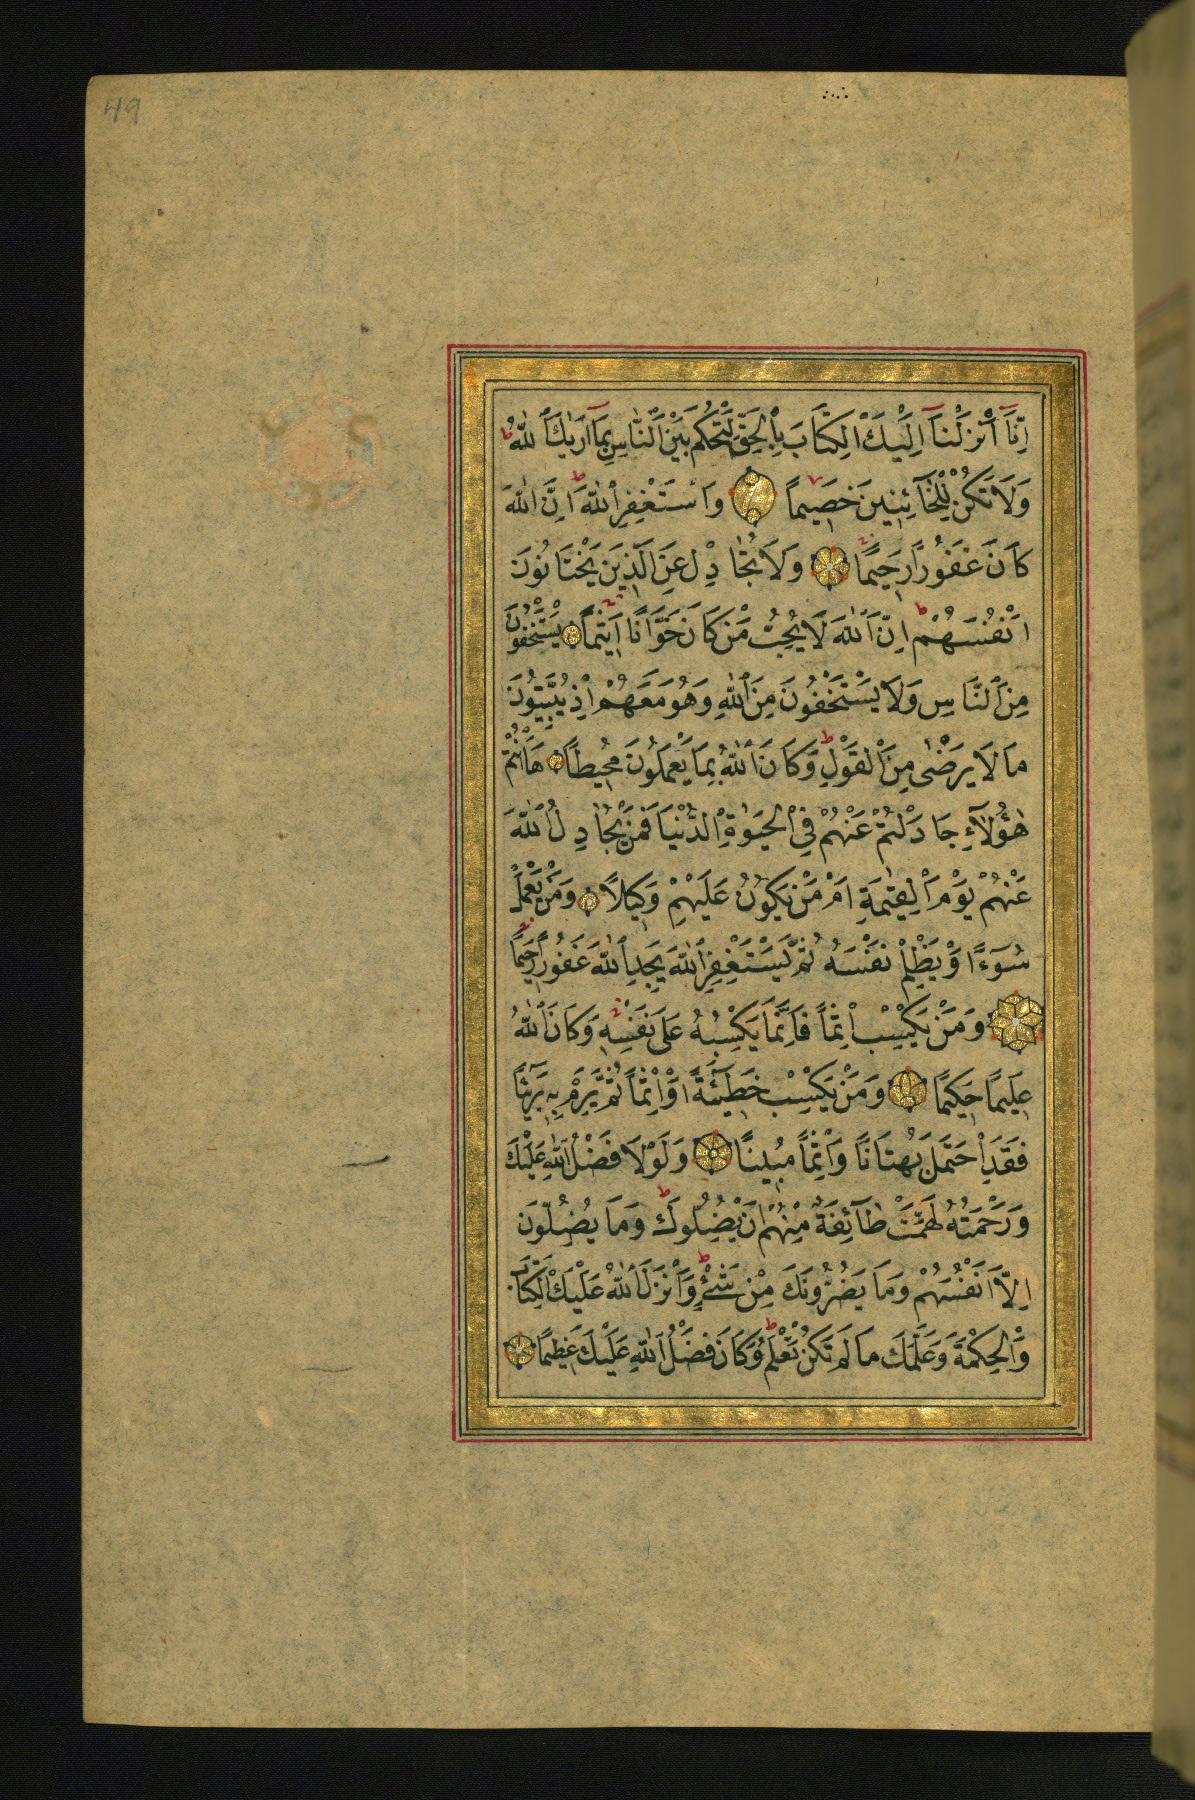 49
اِنَّآ اَنْزَلْنَآ اِلَيْكَ الْكِتَابَ بِالْحَقِّ لِتَحْكُمَ بَيْنَ النَّاسِ بِمَآ اَرٰيكَ اللّٰهُ ط
وَلَا تَكُنْ لِلْخَآئِنِينَ خَصِيمًا وَاسْتَغْفِرِ اللّٰهَ ط اِنَّ اللّٰهَ
كَانَ غَفُورًا رَحِيمًا وَلَا تُجَادِلْ عَنِ الَّذِينَ يَخْتَانُونَ
اَنْفُسَهُمْ ط اِنَّ اللّٰهَ لَا يُحِبُّ مَنْ كَانَ خَوَّانًا اَثِيمًا يَسْتَخْفُونَ
مِنَ النَّاسِ وَلَا يَسْتَخْفُونَ مِنَ اللّٰهِ وَهُوَ مَعَهُمْ اِذْ يُبَيِّتُونَ
مَا لَا يَرْضٰى مِنَ الْقَوْلِ ط وَكَانَ اللّٰهُ بِمَا يَعْمَلُونَ مُحِيطًا هَآ اَنْتُمْ
هٰٓؤُلَآءِ جَادَلْتُمْ عَنْهُمْ فِي الْحَيٰوةِ الدُّنْيَا فَمَنْ يُجَادِلُ اللّٰهَ
عَنْهُمْ يَوْمَ الْقِيٰمَةِ اَمْ مَنْ يَكُونُ عَلَيْهِمْ وَكِيلًا وَمَنْ يَعْمَلْ
سُوٓءًا اَوْ يَظْلِمْ نَفْسَهُ ثُمَّ يَسْتَغْفِرِ اللّٰهَ يَجِدِ اللّٰهَ غَفُورًا رَحِيمًا
وَمَنْ يَكْسِبْ اِثْمًا فَاِنَّمَا يَكْسِبُهُ عَلٰى نَفْسِهِ وَكَانَ اللّٰهُ
عَلِيمًا حَكِيمًا وَمَنْ يَكْسِبْ خَطِيٓئَةً اَوْ اِثْمًا ثُمَّ يَرْمِ بِهِ بَرِيٓئًا
فَقَدِ احْتَمَلَ بُهْتَانًا وَاِثْمًا مُبِينًا وَلَوْلَا فَضْلُ اللّٰهِ عَلَيْكَ
وَرَحْمَتُهُ لَهَمَّتْ طَآئِفَةٌ مِنْهُمْ اَنْ يُضِلُّوكَ ط وَمَا يُضِلُّونَ
اِلَّآ اَنْفُسَهُمْ وَمَا يَضُرُّونَكَ مِنْ شَيْءٍ ط وَاَنْزَلَ اللّٰهُ عَلَيْكَ الْكِتَابَ
وَالْحِكْمَةَ وَعَلَّمَكَ مَا لَمْ تَكُنْ تَعْلَمُ ط وَكَانَ فَضْلُ اللّٰهِ عَلَيْكَ عَظِيمًا